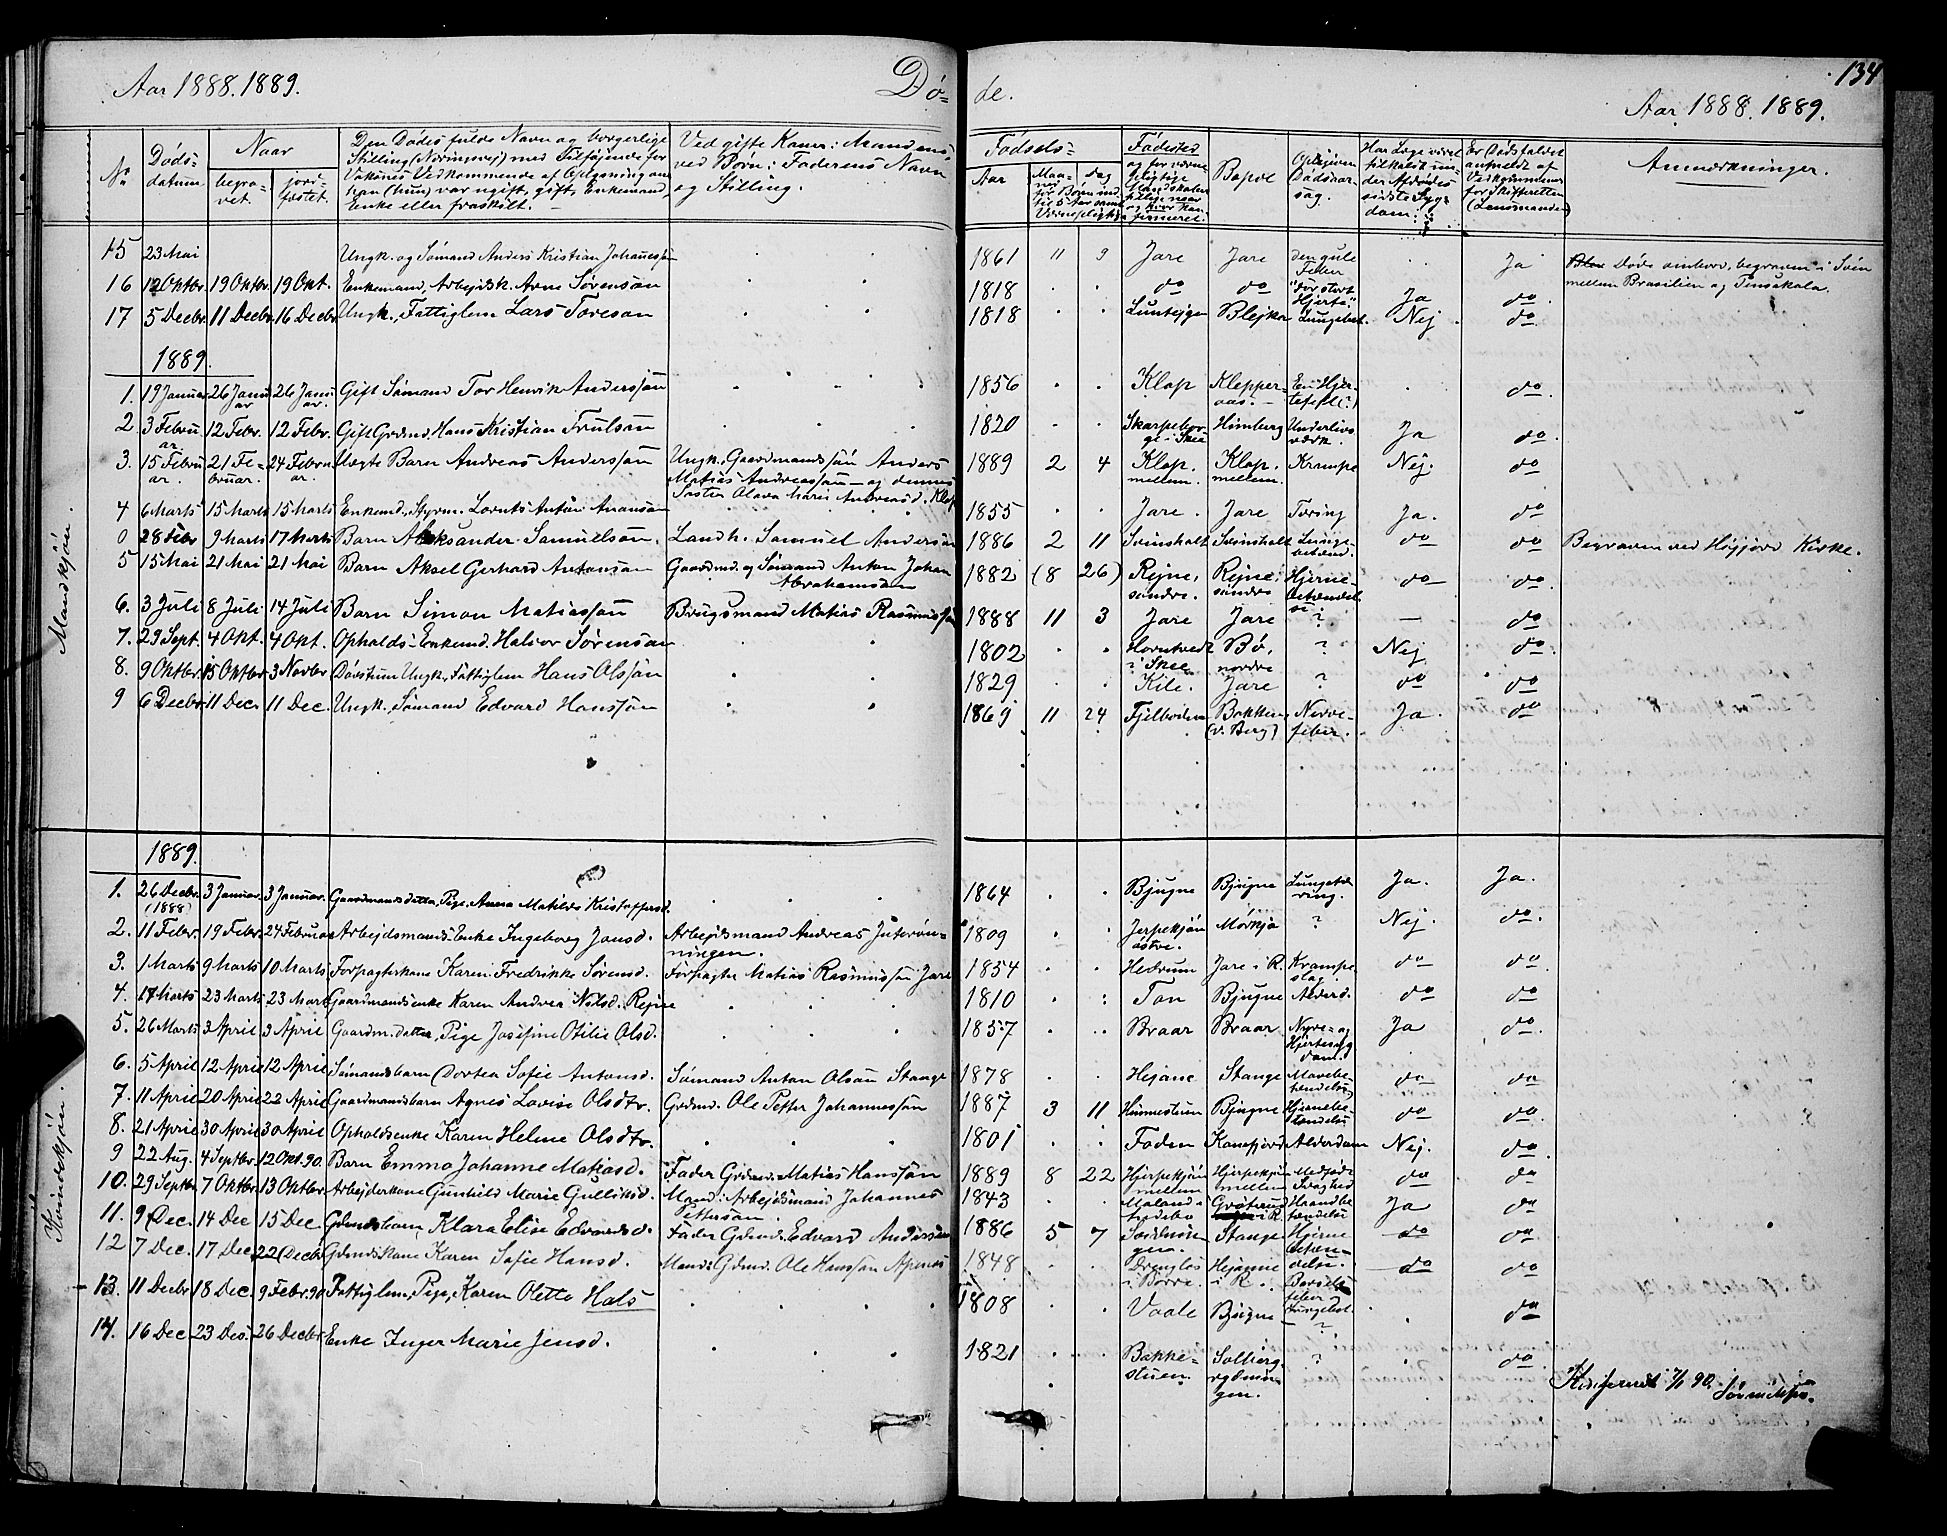 134
Aar 1888. 1889. Dø= de. Aar 1888. 1889.
No
Døds-
datum
Naar
begra-
vet.
jord-
fæstet.
Den Dødes fulde Navn og borgerlige
Stilling (Næringsvej) med Tilføjende for
Voksnes Vedkommende af Oplysning om
han (hun) var ugift, gift, Enkemand,
Enke eller fraskilt.
Ved gifte Koner: Mandens,
ved Børn: Faderens Navn
og Stilling.
Fødsels-
Aar
Dag
Fødested
Bopæl
Opgiven
Dødsaar-
sag.
Har Læge været
tilkaldt un-
der Afdødes
sidste Syg-
dom:
Er Dødsfaldet
anmeldt af
Vedkommende
for Skifteretten
(Lensmanden)
Anmærkninger.
Mandkjøn.
15 23 Mai Ungk. og Sømand Anders Kristian Johannessøn 1861 11 9 Jare Jare den gule Feber Ja Døde ombord, begraven i Søen
mellem Brasilien og Pensakola.
16 12 Oktbr. 19 Oktbr. 19 Okt. Enkemand, Arbejdsk. Arne Sørensøn 1818 do do "For stort Hjerte" Ja do
17 5 Decbr. 11 Decbr. 16 Decbr. Ungk., Fattiglem Lars Toresøn 1818 Blejka Lungebet. Nej do
1889.
1. 19 Januar 26 Januar 26 Januar. Gift Sømand Tor Henrik Anderssøn 1856 Klop Klepper-
aas. do.
2. 3 Februar 12 Febr. 12 Febr. Gift Grdmd. Hans Kristian Trulsøn 1820 Skarpebor-
ge i Skee Himberg Underlivs-
værk. Ja do.
3. 15 Februar. 21 Februar. 24 Februar. Uægte Barn Andreas Anderssøn Ungk. Gaardmandssøn Anders
Matias Andreassøn og dennes
Søster Olava Marie Andreasd. Klop 1889 2 4 Klop.
mellem. Klop.
mellem. Krampe Nej. do
4 6 Marts 15 Marts 15 Marts Enkemd., Styrm. Lornts Anton Amansøn 1855 Jare. Jare Tæring Ja. do
0 28 Febr 9 Marts 17 Marts Barn Aleksander Samuelsøn. Landh. Samuel Andersøn 1886 2 11 Svinsholt Svinsholt Lunge-
betænd. do do Begraven ved Høijord Kirke.
5 15 Mai 21 Mai 21 Mai Barn Aksel Gerhard Antonsøn Gaardmd. og Sømand Anton Johan
Abrahamsøn 1882 (8 26) Rejne,
søndre. Rejne,
søndre Hjerne-
betændel-
se do do
6. 3 Juli 8 Juli 14 Juli Barn Simon Matiassøn Brugsmand Matias Rasmussøn 1888 11 3 Jare Jare ? — do
7. 29 Sept. 4 Okt. 4 Okt. Opholds-Enkemd. Halvor Sørensøn 1802 Horntvedt
i Skee Bø,
nordre ? Nej do.
8. 9 Oktbr. 15 Oktbr 3 Novbr Døvstum Ungk., Fattiglem Hans Olssøn 1829 Kile. Jare ? do do
9 6 Decbr. 11 Dec. 11 Dec. Ungk., Sømand Edvard Hanssøn 1869 11 24 Fjelboden Bakken
(v. Berg) Nerve-
feber. Ja. do
Kvindekjøn.
1889.
1. 26 Decbr.
(1888) 3 Januar. 3 Januar. Gaardmandsdatter, Pige, Anna Matilde Kristoffersd. 1864 Bjugne Bjugne Lungetæ-
ring. Ja. Ja.
2. 11 Febr. 19 Febr. 24 Februar Arbejdsmands Enke Ingeborg Jansd. Arbejdsmand Andreas 1809 Jerpekjøn
østre. Mørkja ? Nej. do.
3. 1 Marts 9 Marts 10 Marts Forpagterkone Karen Fredrikke Sørensd. Forpagter Matias Rasmussøn Jare 1854 Hedrum Jare i R. Krampe-
slag. do do.
4. 17 Marts 23 Marts 23 Marts Gaardmandsenke Karen Andrea Nilsd. Rejne 1810 Ton Bjugne Alderd. do do
5. 26 Marts 3 April 3 April Gaardm.datter, Pige Josefine Otilie Olsd. 1857 Braar Braar Nyre- og
Hjertesyg
dom. Ja do
6. 5 April 12 April 12 April Sømandsbarn Dortea Sofie Antonsd. Sømand Anton Olsøn Stange 1878 Hejane Stange Mavebe-
tændelse do do
7. 11 April 20 April 22 April Gaardmandsbarn Agnes Lovise Olsdtr. Grdmd. Ole Petter Johannessøn 1887 3 11 Himmestum Bjugne Hjernebe-
tændelse do do.
8. 21 April 30 April 30 April Opholdsenke Karen Helene Olsdtr. 1801 Foden Kamfjord Alderdom Nej. do
9 22 Aug. 4 Septbr. 12 Okt. 90. Barn Emma Johanne Matiasd. Fader Grdmd. Matias Hanssøn 1889 8 22 Hjerpekjøn
mellem Hjerpekjøn
mellem Medfødt
Svaghed do do
10. 29 Septbr 7 Oktbr. 13 Oktbr. Arbejderkone Gunhild Marie Gulliksd. Mand: Arbejdsmand Johannes
Pettersøn. 1843 Ja do
11. 9 Dec. 14 Dec 15 Dec. Grdmdsbarn, Klara Elise Edvardsd. Fader Grdmd. Edvard Andersøn 1886 5 7 Stange Hjerne
betæn-
delse. do do
12 7 Dec. 17 Dec. 22 Decbr Grdmdskone Karen Sofie Hansd. Mand: Grdmd. Ole Hanssøn 1848 i Borre. Hejanne
i R. Barsel-
feber do do
13. 11 Decbr 18 Dec. 9 Febr. 90. Fattiglem, Pige, Karen Olette Hals 1808 Vaale Bjugne Lungebet.
? do
14. 16 Dec 23 Des. 26 Decbr Enke Inger Marie Jensd. 1821 Bakke-
stuen. Solberg-
ygdnin-
gen. ? do
90.